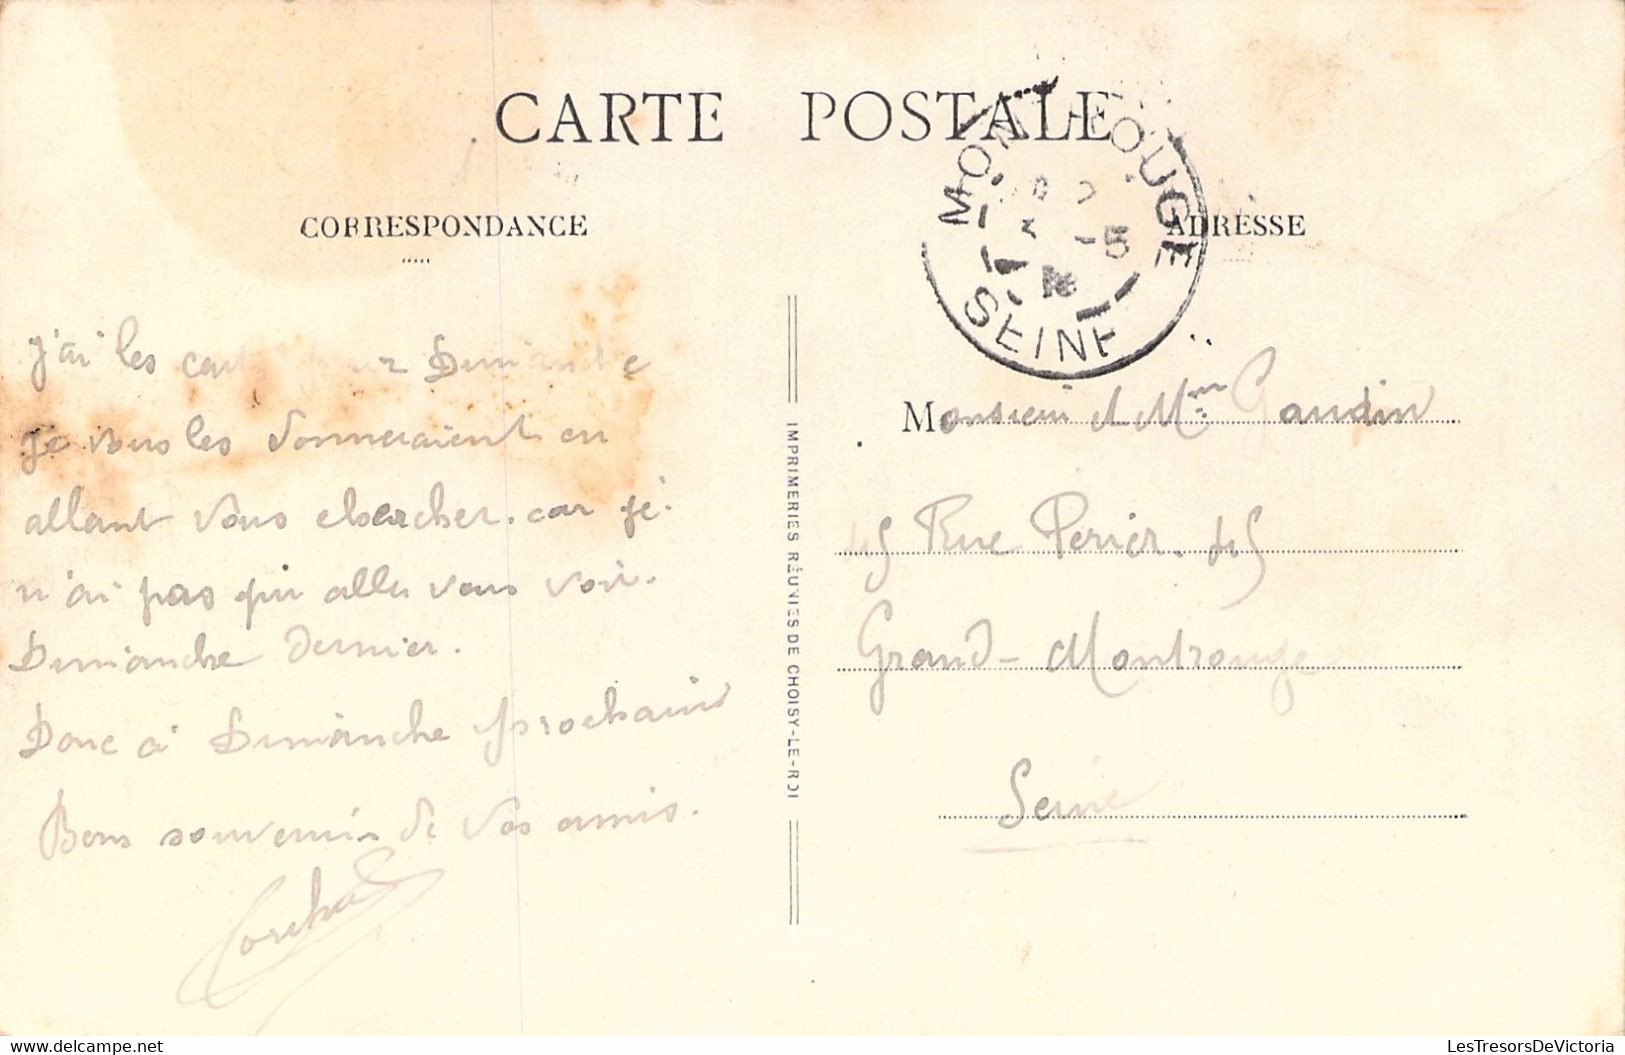 CARTE POSTALE
CORRESPONDANCE
ADRESSE
MONTROUGE
-5
SEINE
j'ai les cartes pour Dimanche
je vous les donneraient en
allant vous chercher. car je
n'ai pas pu aller vous voir.
Dimanche dernier.
Donc à Dimanche prochain
Bons souvenir de vos amis.
IMPRIMERIES RÉUNIES DE CHOISY-LE-ROI
Monsieur et Mme Gaudin
Rue Perier. 45
Grand-Montrouge
Seine
LesTresorsDeVictoria
delcampe.net